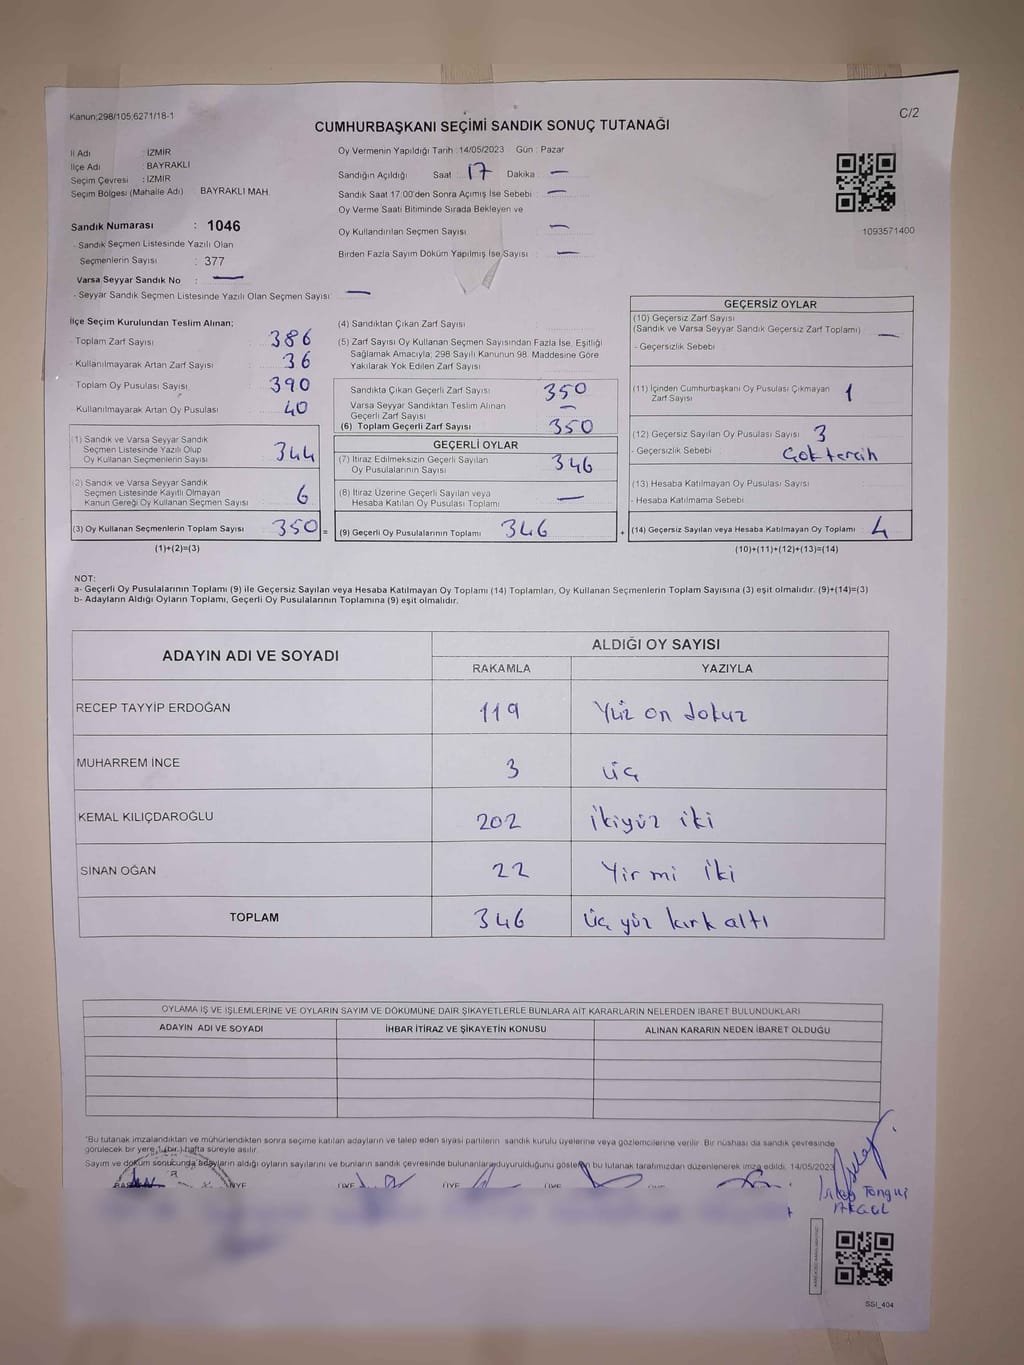 Kanun;298/105;6271/18-1
C/2
CUMHURBAŞKANI SEÇİMİ SANDIK SONUÇ TUTANAĞI
İl Adı : İZMİR
İlçe Adı : BAYRAKLI
Seçim Çevresi : İZMİR
Seçim Bölgesi (Mahalle Adı) BAYRAKLI MAH.
Sandık Numarası : 1046
- Sandık Seçmen Listesinde Yazılı Olan
Seçmenlerin Sayısı : 377
Varsa Seyyar Sandık No : —
- Seyyar Sandık Seçmen Listesinde Yazılı Olan Seçmen Sayısı: —
Oy Vermenin Yapıldığı Tarih :14/05/2023 Gün : Pazar
Sandığın Açıldığı Saat : 17 Dakika : —
Sandık Saat 17:00'den Sonra Açımış İse Sebebi : —
Oy Verme Saati Bitiminde Sırada Bekleyen ve
Oy Kullandırılan Seçmen Sayısı : —
Birden Fazla Sayım Döküm Yapılmış İse Sayısı : —
1093571400
İlçe Seçim Kurulundan Teslim Alınan;
- Toplam Zarf Sayısı : 386
- Kullanılmayarak Artan Zarf Sayısı : 36
- Toplam Oy Pusulası Sayısı : 390
- Kullanılmayarak Artan Oy Pusulası : 40
(1) Sandık ve Varsa Seyyar Sandık
Seçmen Listesinde Yazılı Olup
Oy Kullanan Seçmenlerin Sayısı 344
(2) Sandık ve Varsa Seyyar Sandık
Seçmen Listesinde Kayıtlı Olmayan
Kanun Gereği Oy Kullanan Seçmen Sayısı 6
(3) Oy Kullanan Seçmenlerin Toplam Sayısı 350 =
(1)+(2)=(3)
(4) Sandıktan Çıkan Zarf Sayısı
(5) Zarf Sayısı Oy Kullanan Seçmen Sayısından Fazla İse, Eşitliği
Sağlamak Amacıyla; 298 Sayılı Kanunun 98. Maddesine Göre
Yakılarak Yok Edilen Zarf Sayısı
Sandıkta Çıkan Geçerli Zarf Sayısı 350
Varsa Seyyar Sandıktan Teslim Alınan
Geçerli Zarf Sayısı —
(6) Toplam Geçerli Zarf Sayısı 350
GEÇERLİ OYLAR
(7) İtiraz Edilmeksizin Geçerli Sayılan
Oy Pusulalarının Sayısı 346
(8) İtiraz Üzerine Geçerli Sayılan veya
Hesaba Katılan Oy Pusulası Toplamı —
(9) Geçerli Oy Pusulalarının Toplamı 346 +
GEÇERSİZ OYLAR
(10) Geçersiz Zarf Sayısı
(Sandık ve Varsa Seyyar Sandık Geçersiz Zarf Toplamı) —
- Geçersizlik Sebebi
(11) İçinden Cumhurbaşkanı Oy Pusulası Çıkmayan
Zarf Sayısı 1
(12) Geçersiz Sayılan Oy Pusulası Sayısı 3
- Geçersizlik Sebebi Çok tercih
(13) Hesaba Katılmayan Oy Pusulası Sayısı
- Hesaba Katılmama Sebebi
(14) Geçersiz Sayılan veya Hesaba Katılmayan Oy Toplamı 4
(10)+(11)+(12)+(13)=(14)
NOT:
a- Geçerli Oy Pusulalarının Toplamı (9) ile Geçersiz Sayılan veya Hesaba Katılmayan Oy Toplamı (14) Toplamları, Oy Kullanan Seçmenlerin Toplam Sayısına (3) eşit olmalıdır. (9)+(14)=(3)
b- Adayların Aldığı Oyların Toplamı, Geçerli Oy Pusulalarının Toplamına (9) eşit olmalıdır.
ADAYIN ADI VE SOYADI ALDIĞI OY SAYISI
RAKAMLA YAZIYLA
RECEP TAYYİP ERDOĞAN 119 Yüz on dokuz
MUHARREM İNCE 3 üç
KEMAL KILIÇDAROĞLU 202 ikiyüz iki
SİNAN OĞAN 22 Yirmi iki
TOPLAM 346 üç yüz kırk altı
OYLAMA İŞ VE İŞLEMLERİNE VE OYLARIN SAYIM VE DÖKÜMÜNE DAİR ŞİKAYETLERLE BUNLARA AİT KARARLARIN NELERDEN İBARET BULUNDUKLARI
ADAYIN ADI VE SOYADI İHBAR İTİRAZ VE ŞİKAYETİN KONUSU ALINAN KARARIN NEDEN İBARET OLDUĞU
"Bu tutanak imzalandıktan ve mühürlendikten sonra seçime katılan adayların ve talep eden siyasi partilerin sandık kurulu üyelerine veya gözlemcilerine verilir. Bir nüshası da sandık çevresinde
görülecek bir yere 1 (bir) hafta süreyle asılır.
Sayım ve döküm sonucunda adayların aldığı oyların sayılarını ve bunların sandık çevresinde bulunanlara duyurulduğunu gösteren bu tutanak tarafımızdan düzenlenerek imza edildi. 14/05/2023
ÜYE ÜYE ÜYE
AKGÜL
SSİ_404